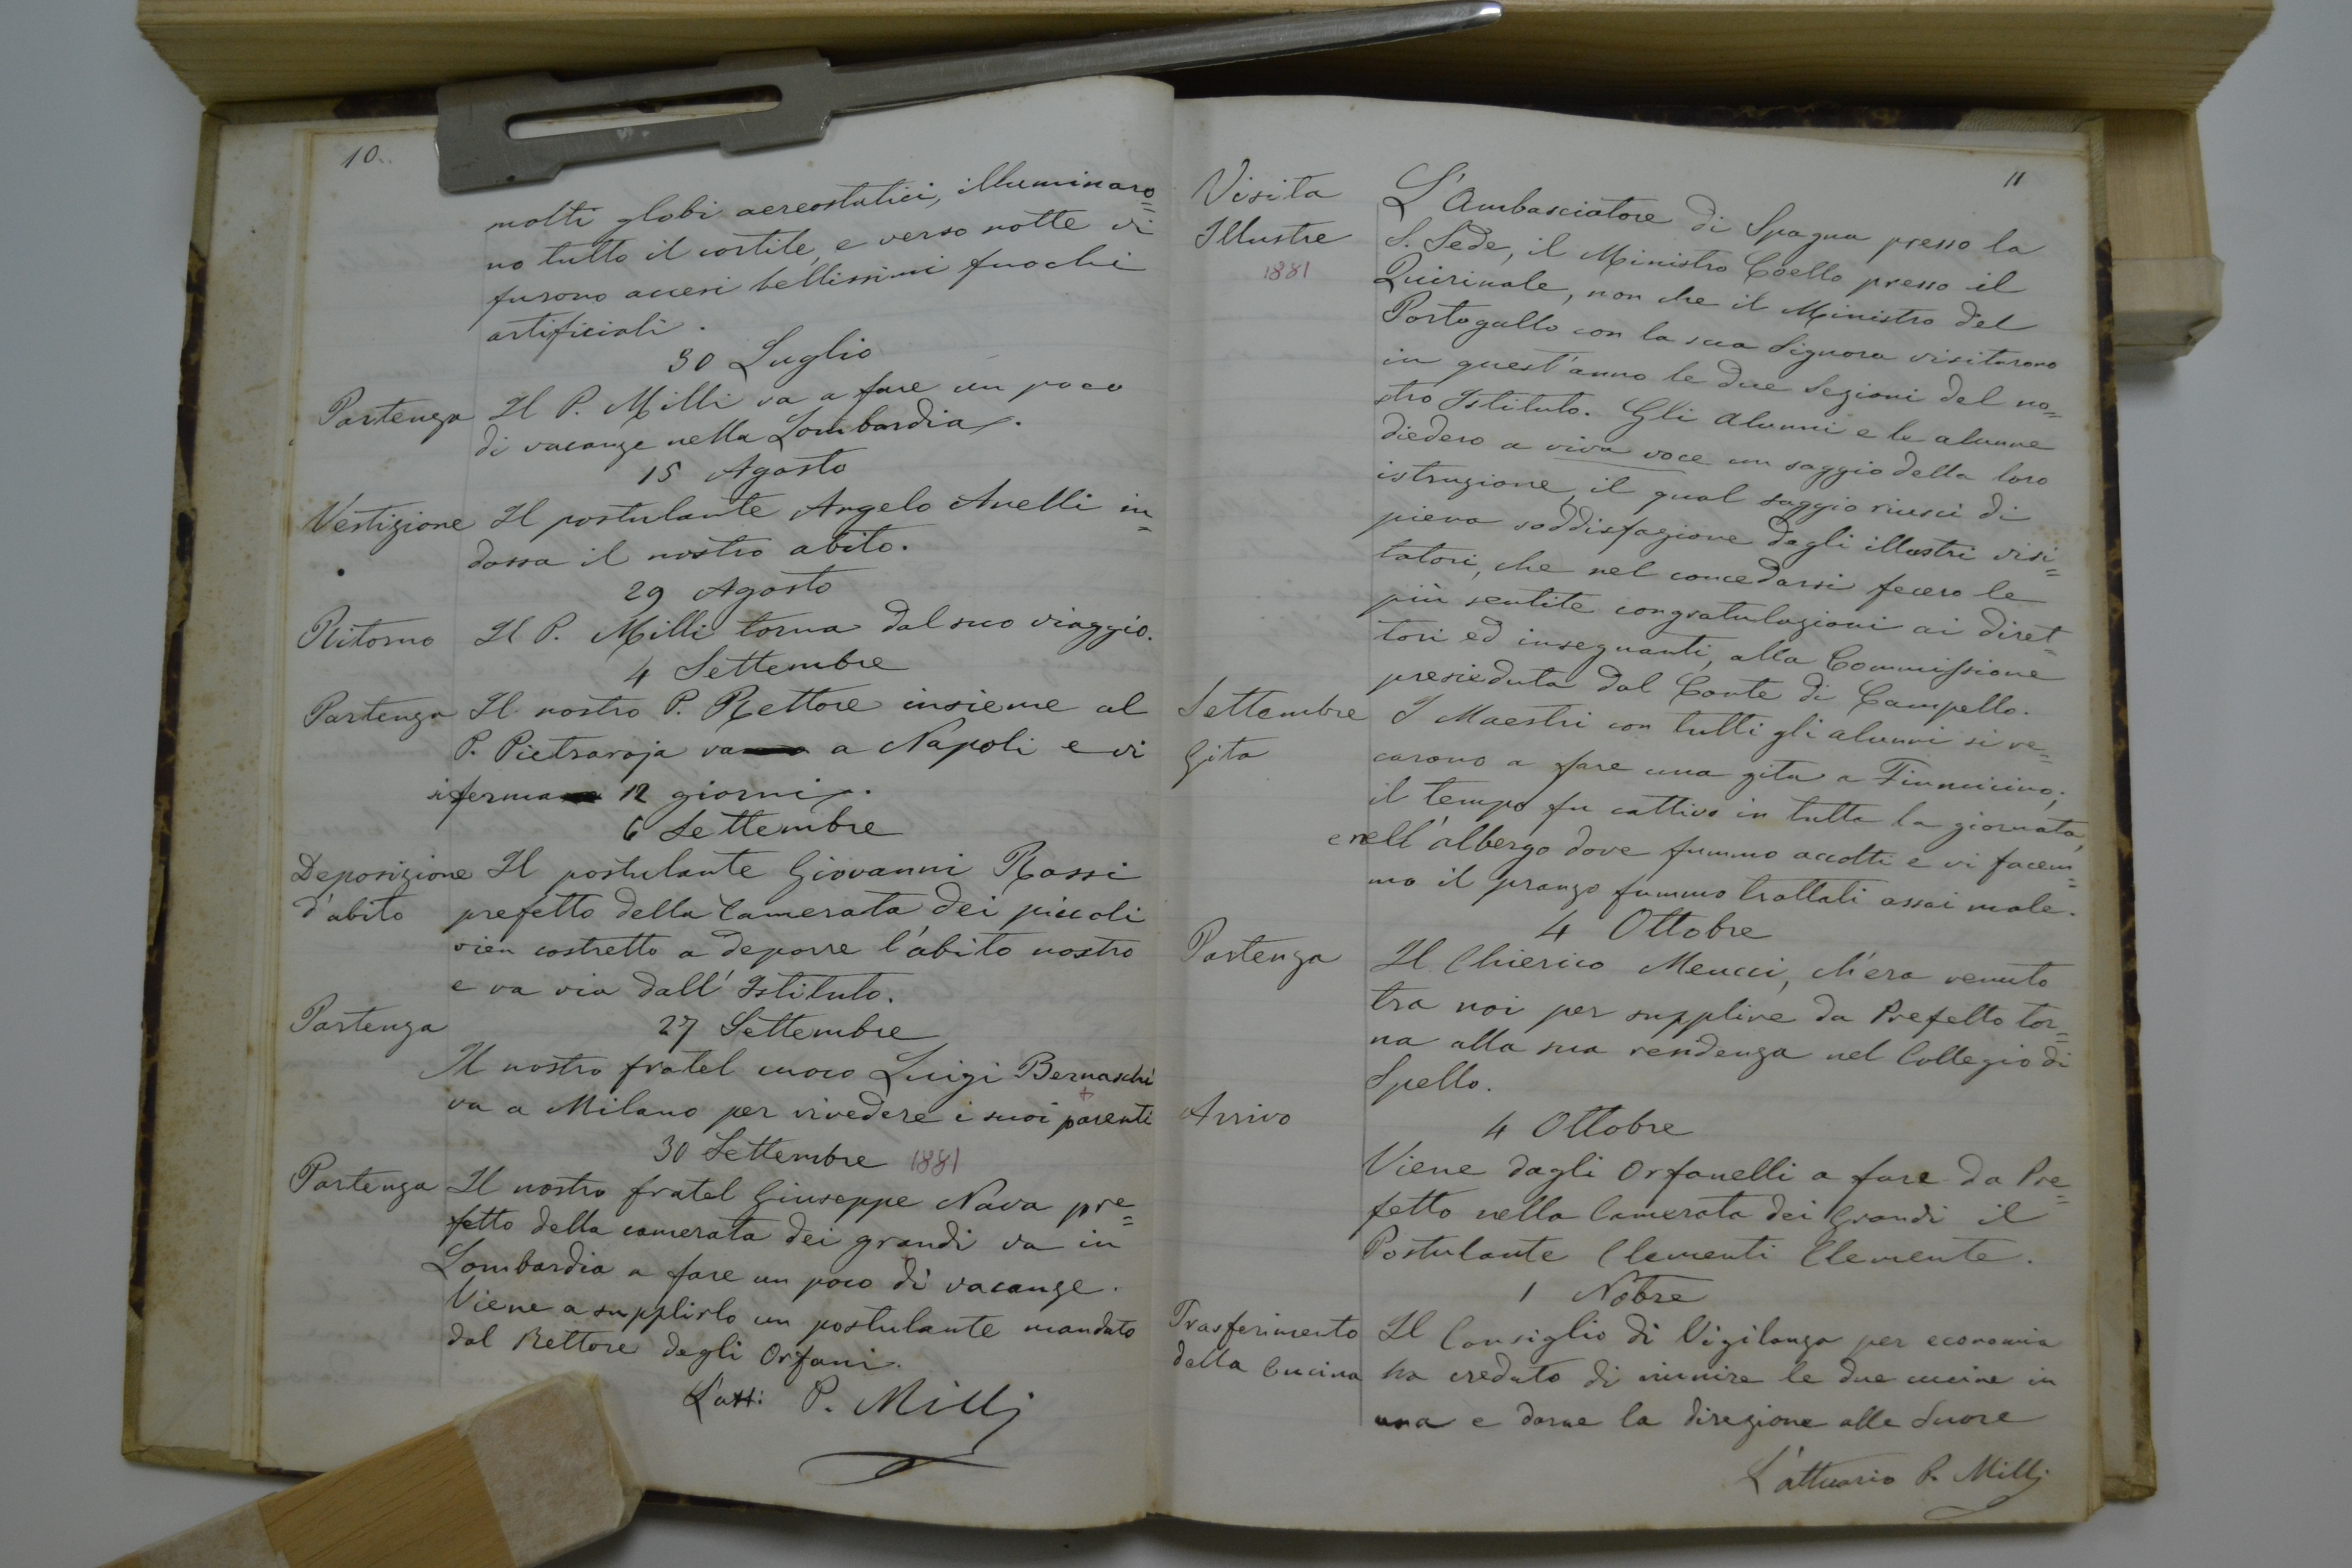 10.
molti globi aereostatici, illuminaro=
no tutto il cortile, e verso notte vi
furono accesi bellissimi fuochi
artificiali.
30 Luglio
Partenza Il P. Milli va a fare un poco
di vacanze nella Lombardia.
15 Agosto
Vestizione Il postulante Angelo Anelli in=
dossa il nostro abito.
29 Agosto
Ritorno Il P. Milli torna dal suo viaggio.
4 Settembre
Partenza Il nostro P. Rettore insieme al
P. Pietraroja va a Napoli e vi
si ferma 12 giorni.
6 Settembre
Deposizione Il postulante Giovanni Rossi
d'abito prefetto della Camerata dei piccoli
vien costretto a deporre l'abito nostro
e va via dall' Istituto.
Partenza 27 Settembre
Il nostro fratel cuoco Luigi Bernaschi
va a Milano per rivedere i suoi parenti
30 Settembre 1881
Partenza Il nostro fratel Giuseppe Nava pre=
fetto della camerata dei grandi va in
Lombardia a fare un poco di vacanze.
Viene a supplirlo un postulante mandato
dal Rettore degli Orfani.
L'att: P. Milli
11
Visita L'Ambasciatore di Spagna presso la
Illustre S. Sede, il Ministro Coello presso il
1881 Quirinale, non che il Ministro del
Portogallo con la sua Signora visitarono
in quest'anno le due Sezioni del no=
stro Istituto. Gli alunni e le alunne
diedero a viva voce un saggio della loro
istruzione, il qual saggio riuscì di
piena soddisfazione degli illustri visi=
tatori, che nel concedarsi fecero le
più sentite congratulazioni ai diret=
tori ed insegnanti, alla Commissione
presieduta dal Conte di Campello.
Settembre I Maestri con tutti gli alunni si re=
Gita carono a fare una gita a Fiumicino;
il tempo fu cattivo in tutta la giornata,
e nell'albergo dove fummo accolti e vi facem=
mo il pranzo fummo trattati assai male.
4 Ottobre
Partenza Il Chierico Meucci, ch'era venuto
tra noi per supplire da Prefetto tor=
na alla sua residenza nel Collegio di
Spello.
Arrivo 4 Ottobre
Viene dagli Orfanelli a fare da Pre=
fetto nella Camerata dei Grandi il
Postulante Clementi Clemente.
1 Nobre
Trasferimento Il Consiglio di Vigilanza per economia
della Cucina ha creduto di riunire le due cucine in
una e darne la direzione alle Suore
L'attuario P. Milli